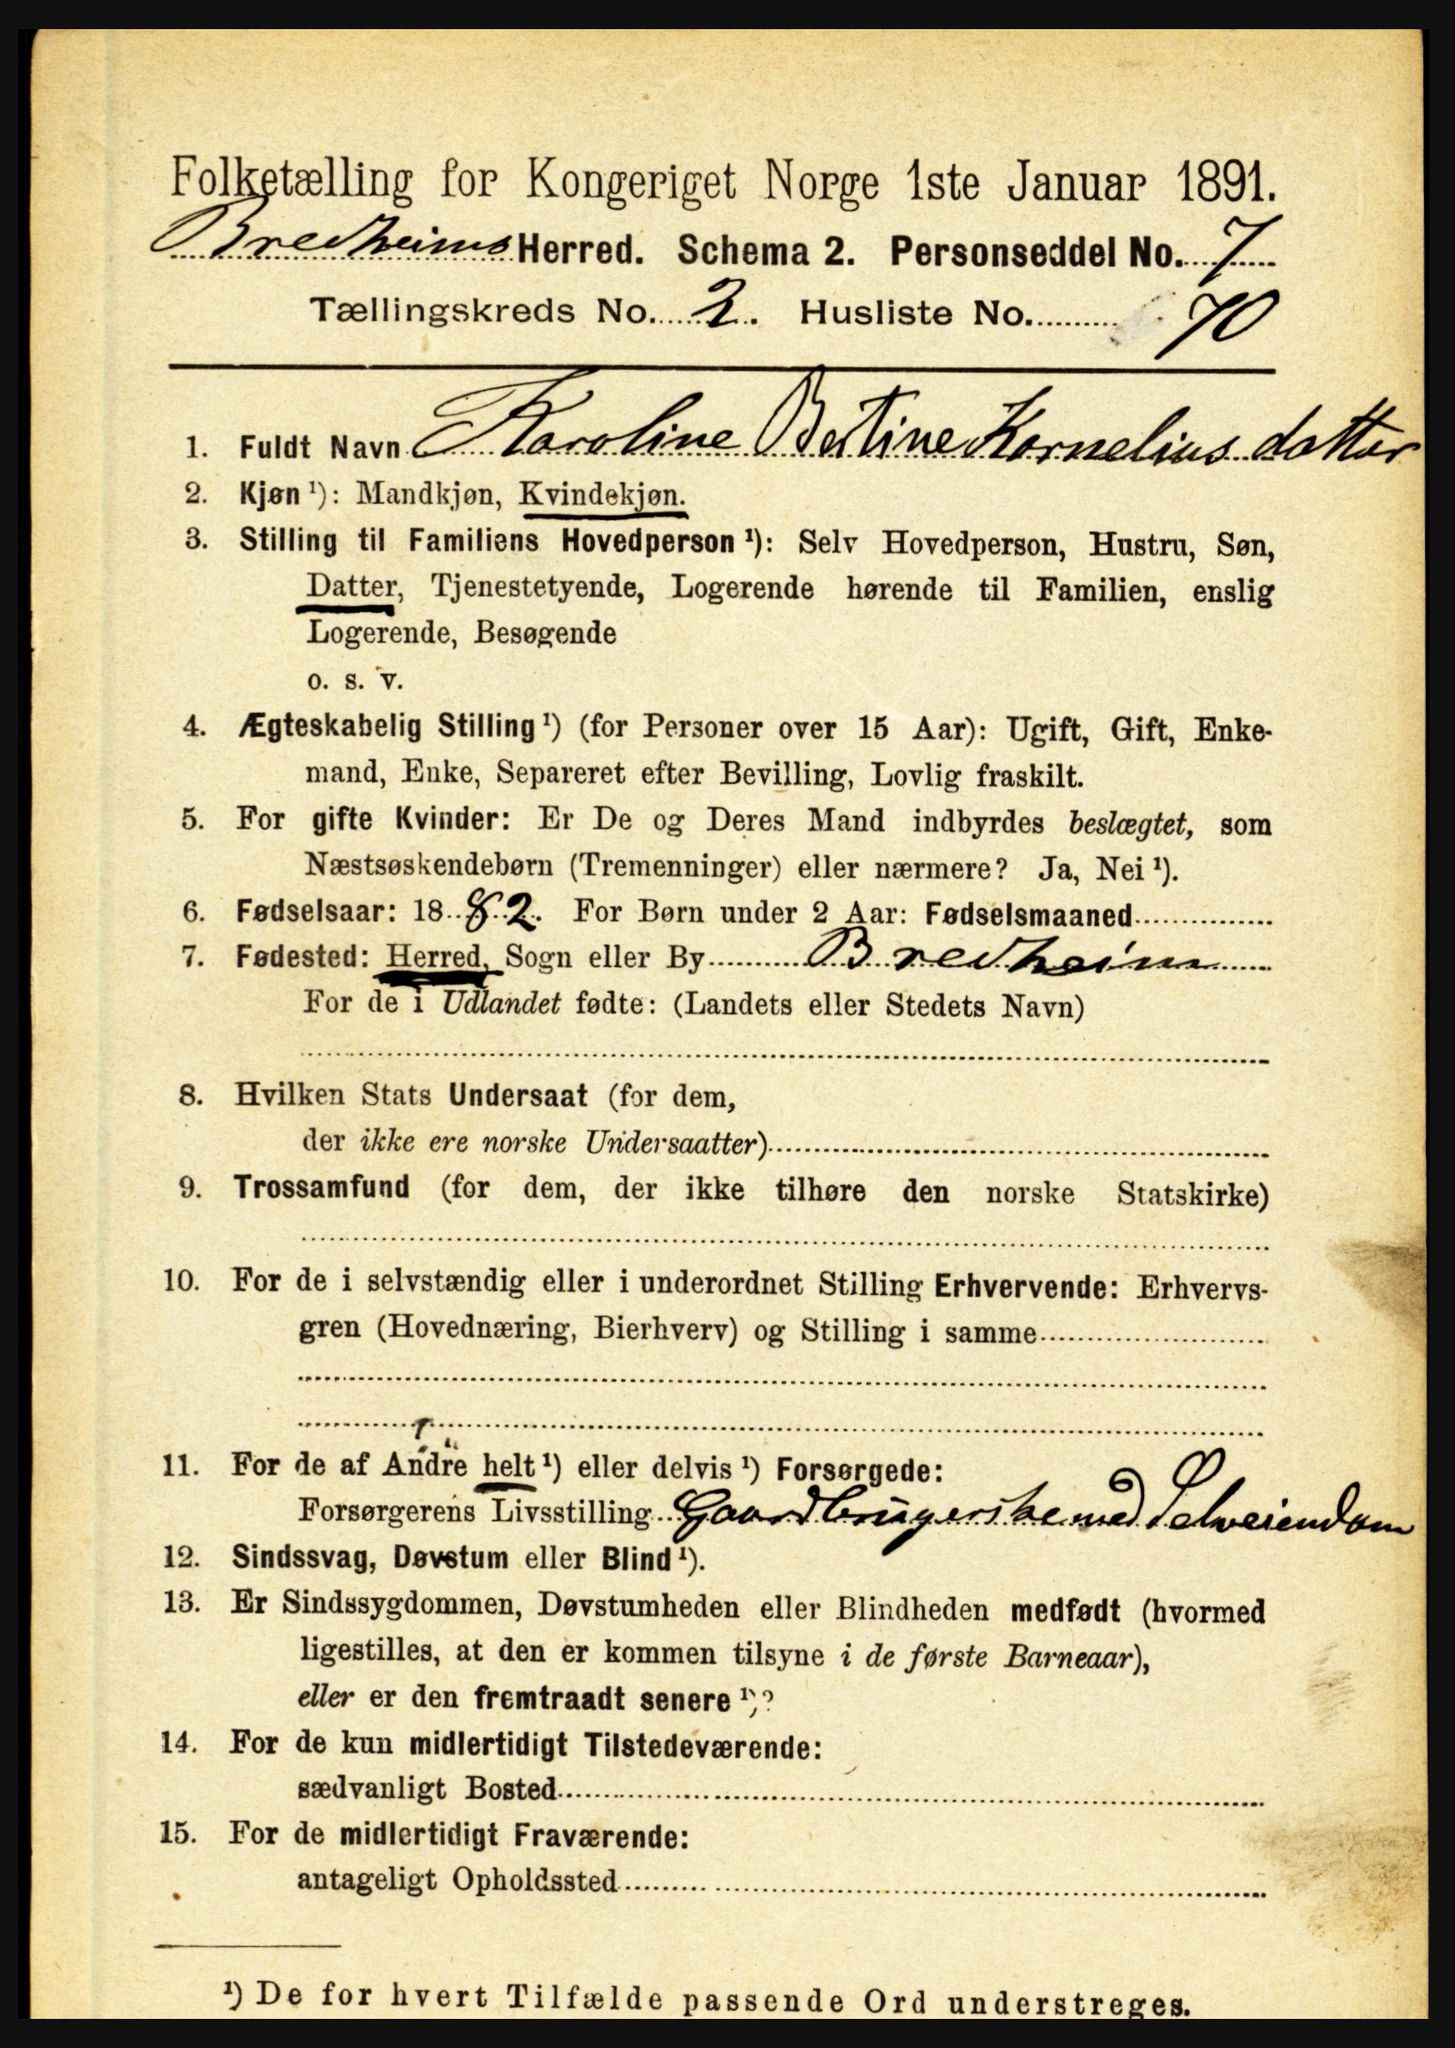 Folketælling for Kongeriget Norge 1ste Januar 1891.
Bredheims Herred. Schema 2. Personseddel No. 7
Tællingskreds No. 2. Husliste No. 70
1. Fuldt Navn Karoline Bertine Kornelius datter
2. Kjøn ¹): Mandkjøn, Kvindekjøn.
3. Stilling til Familiens Hovedperson ¹): Selv Hovedperson, Hustru, Søn,
Datter, Tjenestetyende, Logerende hørende til Familien, enslig
Logerende, Besøgende
o. s. v.
4. Ægteskabelig Stilling ¹) (for Personer over 15 Aar): Ugift, Gift, Enke-
mand, Enke, Separeret efter Bevilling, Lovlig fraskilt.
5. For gifte Kvinder: Er De og Deres Mand indbyrdes beslægtet, som
Næstsøskendebørn (Tremenninger) eller nærmere? Ja, Nei ¹).
6. Fødselsaar: 1882. For Børn under 2 Aar: Fødselsmaaned
7. Fødested: Herred, Sogn eller By Bredheim
For de i Udlandet fødte: (Landets eller Stedets Navn)
8. Hvilken Stats Undersaat (for dem,
der ikke ere norske Undersaatter)
9. Trossamfund (for dem, der ikke tilhøre den norske Statskirke)
10. For de i selvstændig eller i underordnet Stilling Erhvervende: Erhvervs-
gren (Hovednæring, Bierhverv) og Stilling i samme
11. For de af Andre helt ¹) eller delvis ¹) Forsørgede:
Forsørgerens Livsstilling Gaardbrugerske med Selveiendom
12. Sindssvag, Døvstum eller Blind ¹).
13. Er Sindssygdommen, Døvstumheden eller Blindheden medfødt (hvormed
ligestilles, at den er kommen tilsyne i de første Barneaar),
eller er den fremtraadt senere ¹)?
14. For de kun midlertidigt Tilstedeværende:
sædvanligt Bosted
15. For de midlertidigt Fraværende:
antageligt Opholdssted
¹) De for hvert Tilfælde passende Ord understreges.